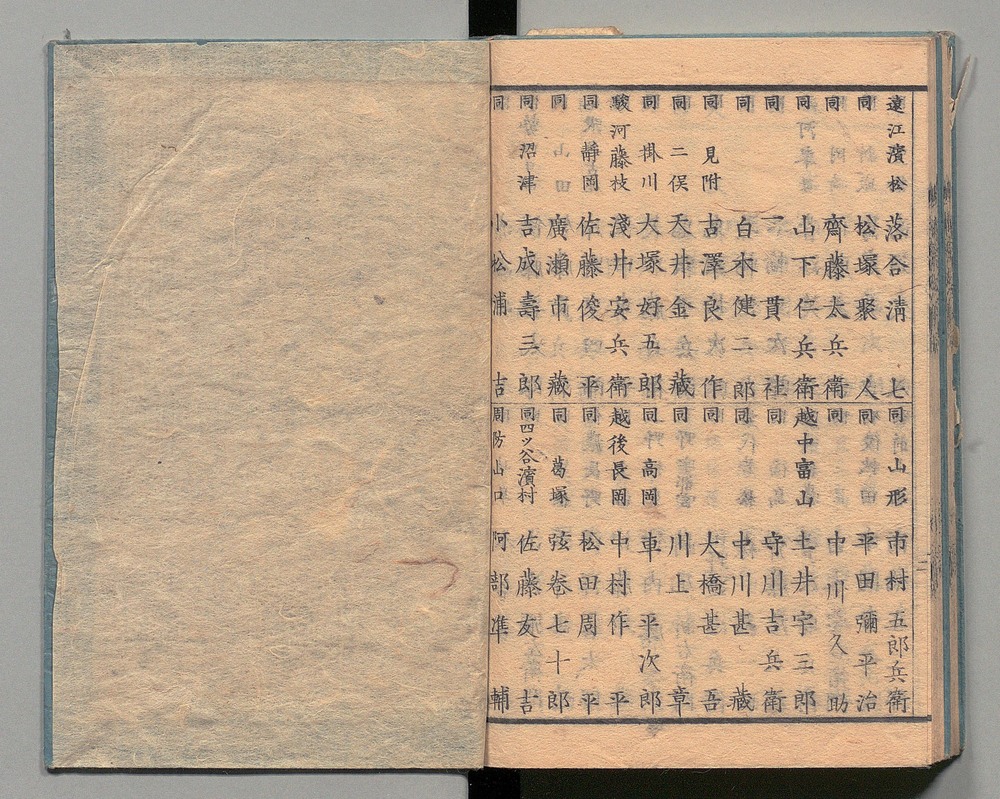 遠江濱松 落合淸七
同 松塚聚人
同 齊藤太兵衛
同 山下仁兵衛
同 一貫社
同 白木健二郎
同 見附 古澤良作
同 二俣 天井金藏
同 掛川 大塚好五郎
駿河藤枝 淺井安兵衛
同 靜岡 佐藤俊平
同 廣瀨市藏
同 沼津 吉成壽三郎
同 小松浦吉
同 山形 市村五郎兵衛
同 平田彌平治
同 中川久助
越中富山 土井宇三郎
同 守川吉兵衛
同 中川甚藏
同 大橋甚吾
同 川上章
同 高岡 車平次郎
越後長岡 中村作平
同 松田周平
同 葛塚 弦卷七十郎
同 四ッ谷濱村 佐藤友吉
周防山口 阿部準輔